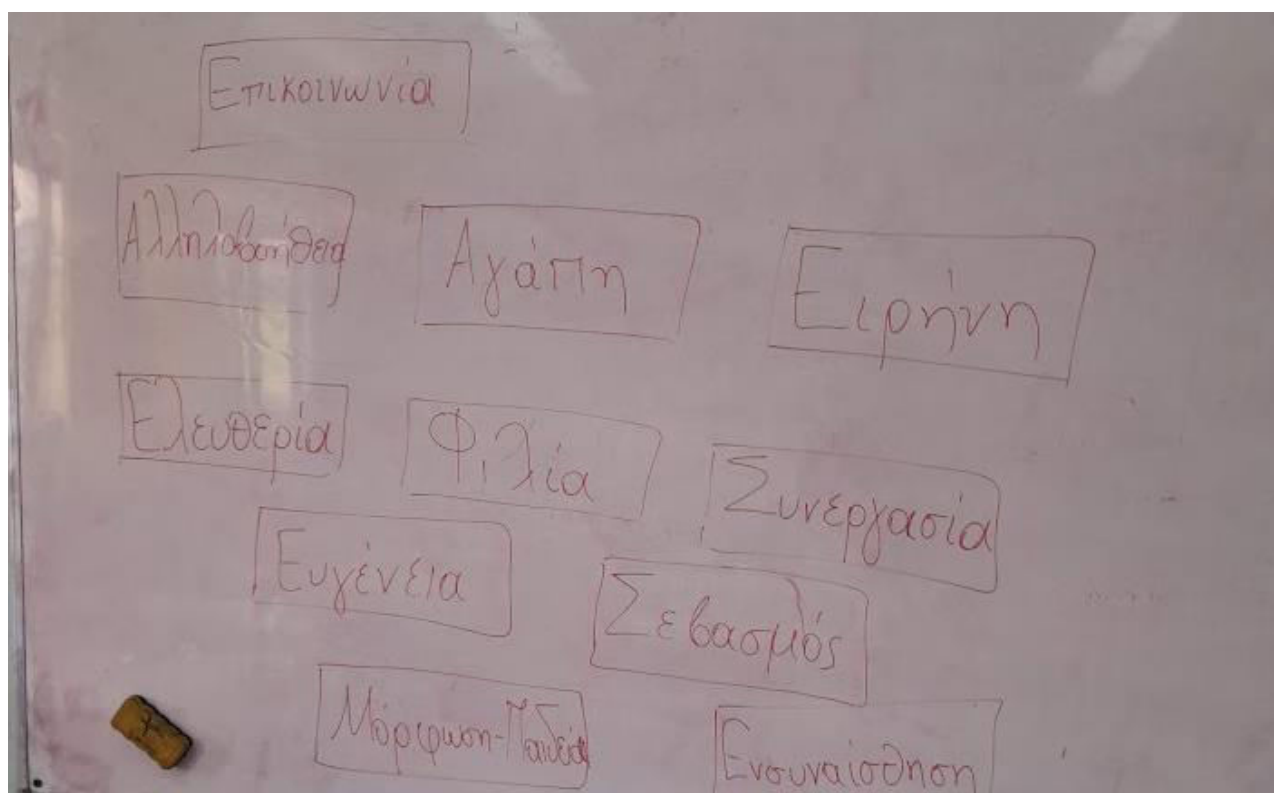 Επικοινωνία
Αλληλοβοήθεια
Αγάπη
Ειρήνη
Ελευθερία
Φιλία
Συνεργασία
Ευγένεια
Σεβασμός
Μόρφωση-Παιδεία
Ενσυναίσθηση